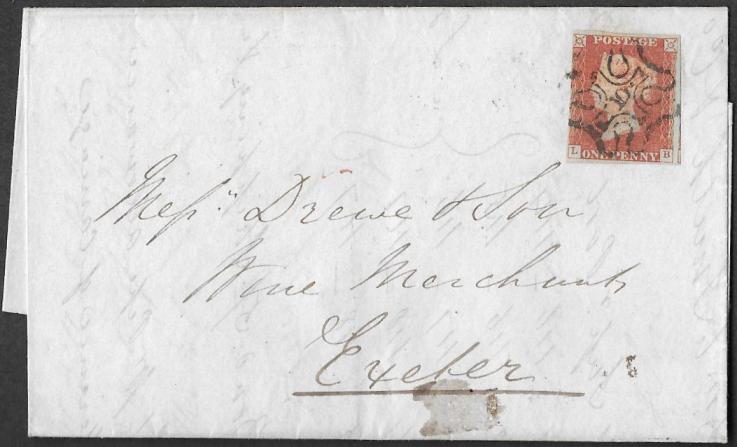 POSTAGE
L ONE PENNY B
Messrs Drewe & Son
Wine Merchants
Exeter